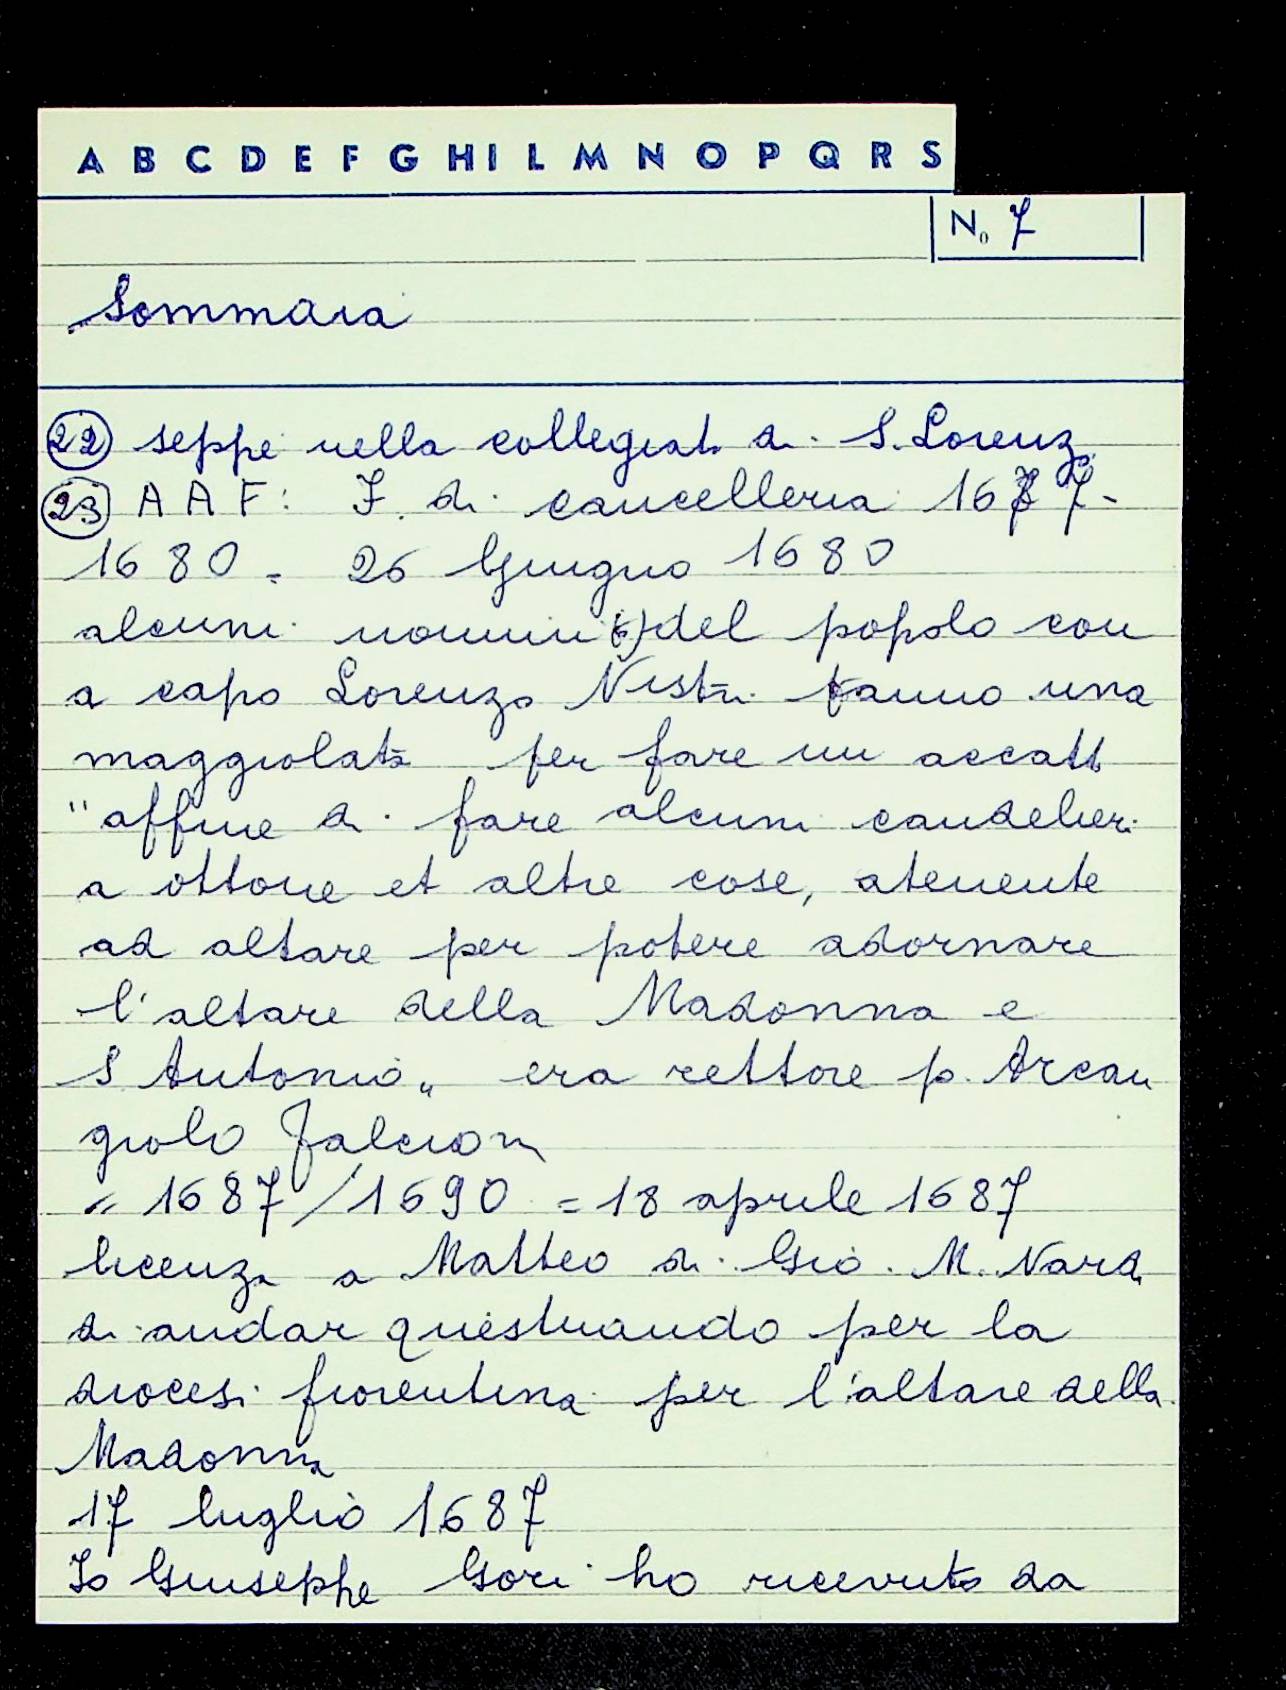 A B C D E F G H I L M N O P Q R S
No 7
Sommaia
22 seppe nella collegiata di S. Lorenzo
23 A A F: F. di cancelleria 1677-
1680 = 26 Giugno 1680
alcuni uomini del popolo con
a capo Lorenzo Nistri fanno una
maggiolata per fare un accatto
"affine di fare alcuni candelieri
a ottone et altre cose, atenente
ad altare per potere adornare
l'altare della Madonna e
S Antonio" era rettore p. Arcan
giolo Falcioni
" 1687/1690 = 18 aprile 1687
licenza a Matteo di Gio. M. Nardi
di andar questuando per la
diocesi fiorentina per l'altare della
Madonna
17 luglio 1687
Io Giusephe Gori ho ricevuto da